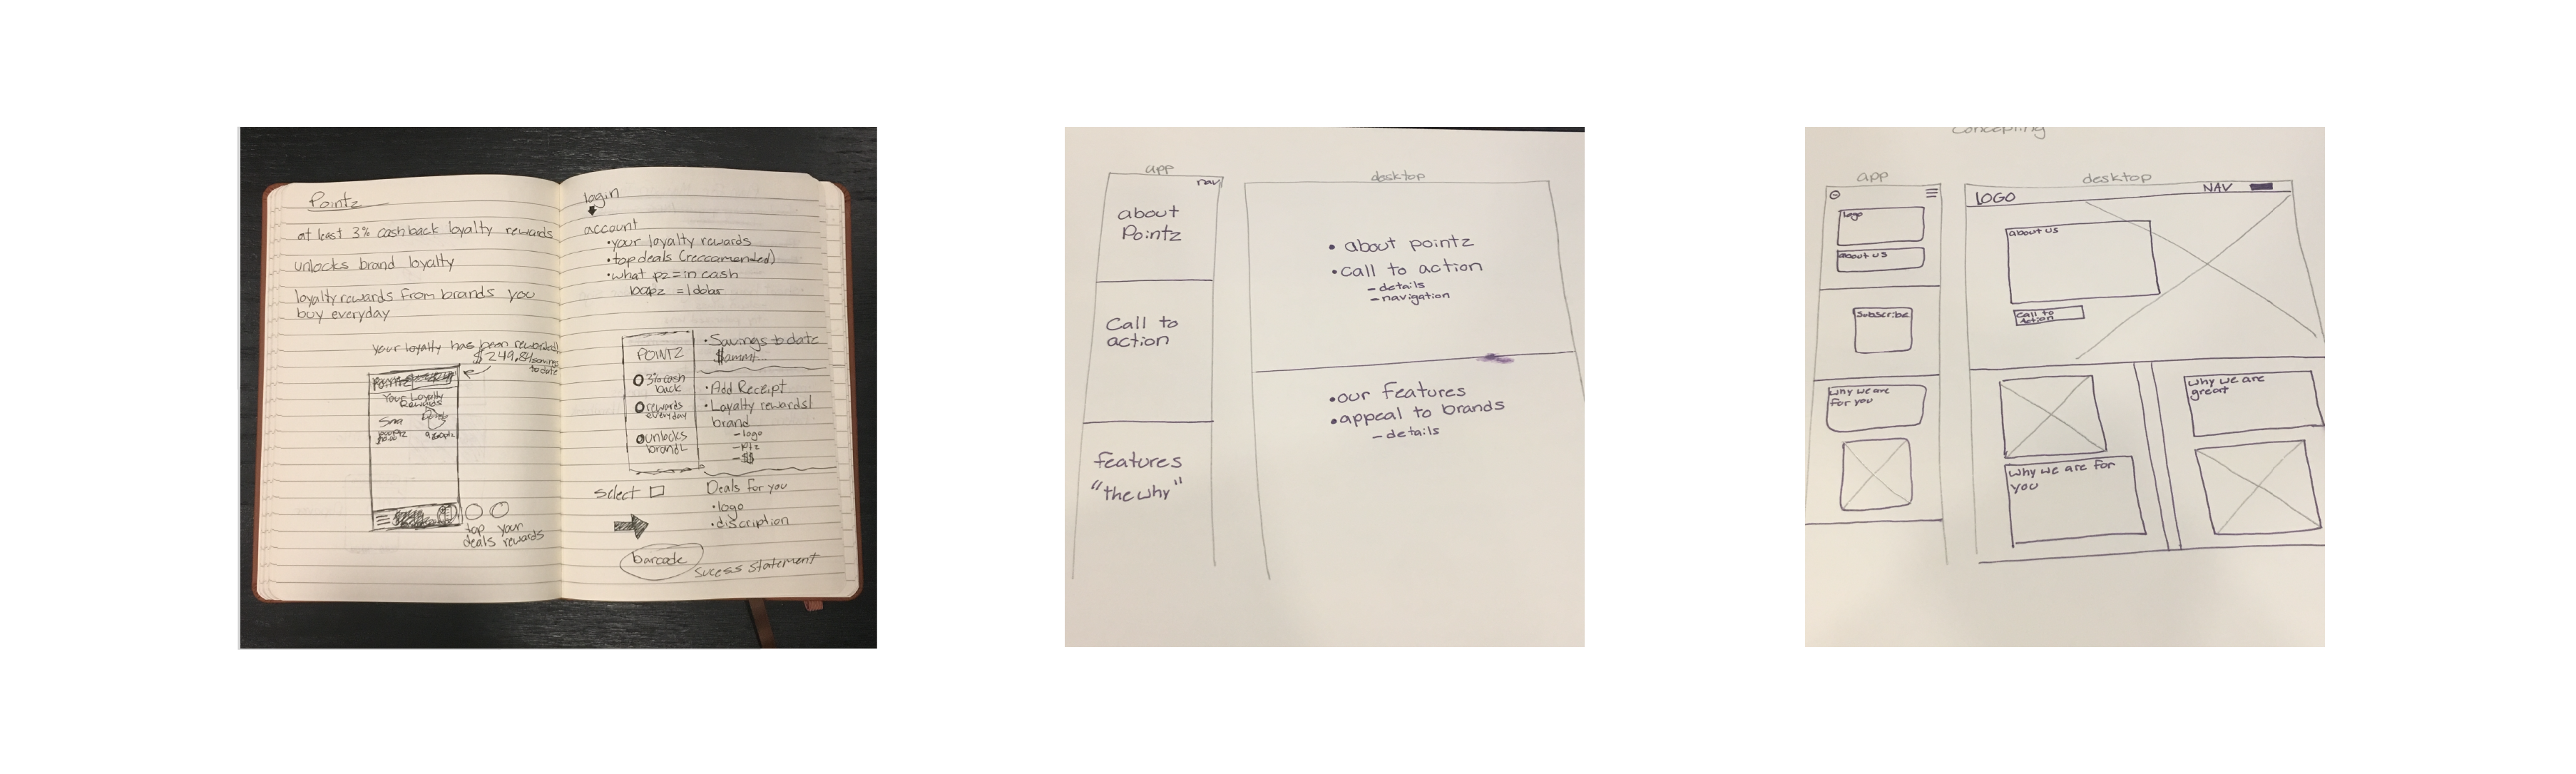 Pointz
at least 3% cashback loyalty rewards
unlocks brand loyalty
loyalty rewards from brands you
buy everyday
your loyalty has been rewarded
$249.84 savings
to date
Pointz
Your Loyalty
Rewards
top your
deals rewards
login
account
•your loyalty rewards
•top deals (reccomended)
•what pz=in cash
POINTZ
3% cash
back
rewards
everyday
unlocks
brand L
•Savings to date
•Add Receipt
•Loyalty rewards/
brand
-logo
-ptz
-$$
select
Deals for you
•logo
•discription
barcode
sucess statement
app
nav
about
Pointz
Call to
action
features
"the why"
desktop
• about pointz
•call to action
-details
-navigation
•our features
•appeal to brands
-details
concepting
app
logo
about us
Subscribe
why we are
for you
desktop
LOGO
NAV
about us
call to
action
why we are for
you
why we are
great